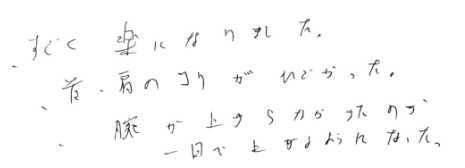 ・すごく楽になりました。
・首、肩のコリがひどかった。
・腕が上がらなかったのが、
一日で上がるようになった。